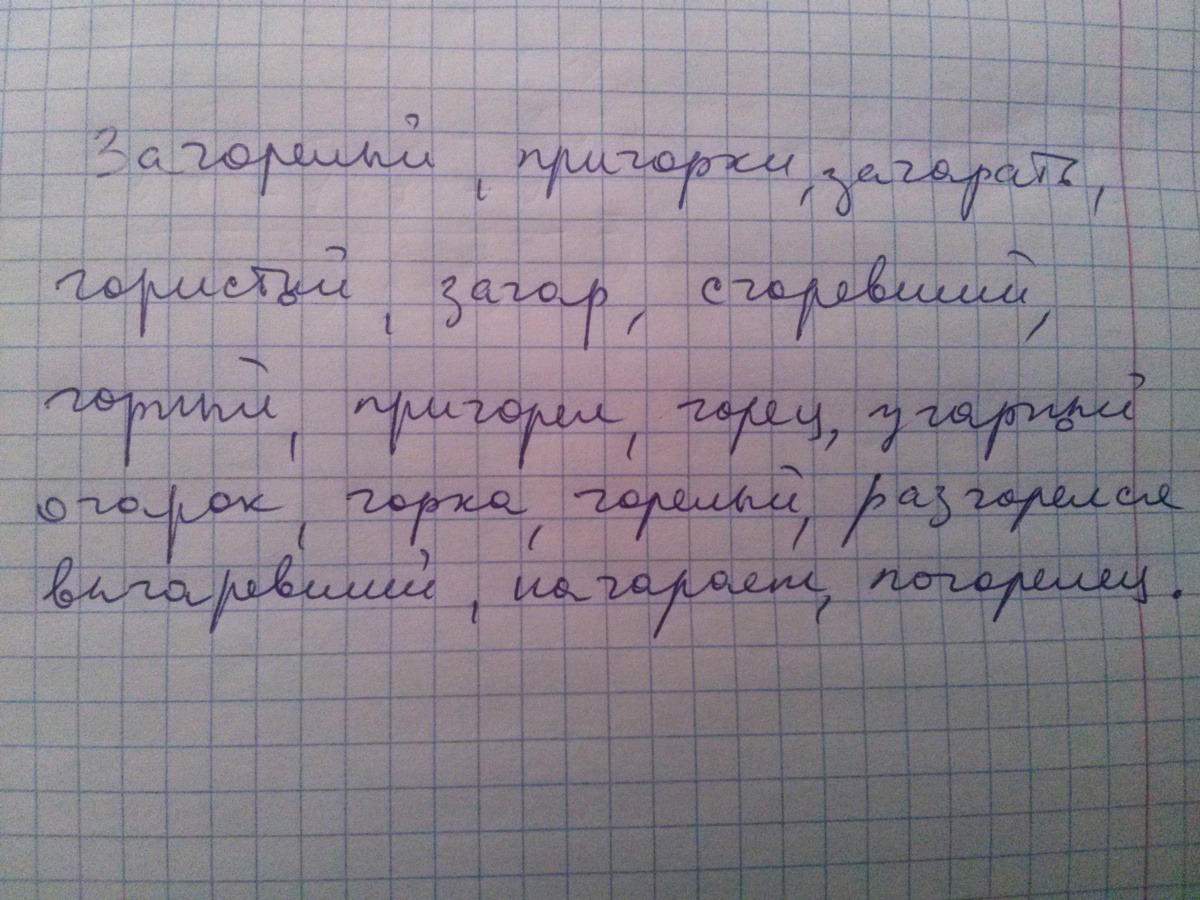 Загорелый, пригорки, загорать,
гористый, загар, сгоревший,
горный, пригорел, горец, угарный
огарок, горка, горелый, разгорелся
выгаревший, нагарает, погорелец.